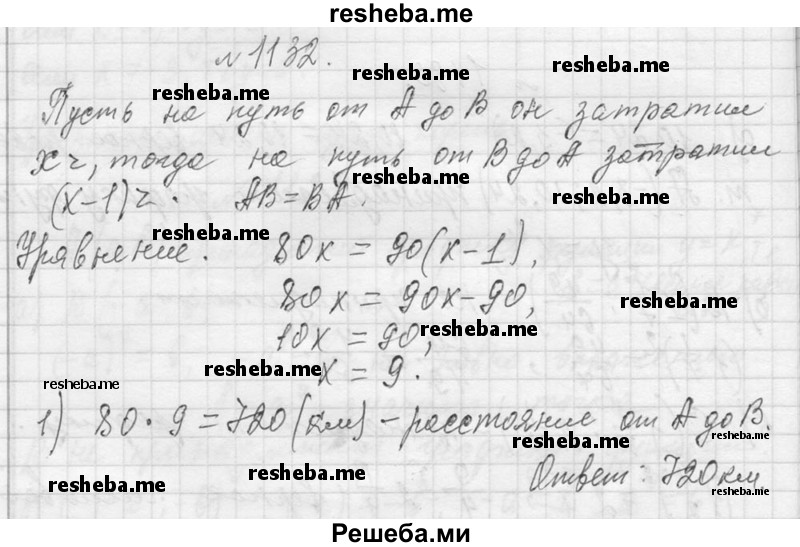 resheba.me
№1132.
resheba.me resheba.me
resheba.me
Пусть на путь от A до B он затратил
resheba.me
x ч, тогда на путь от B до A затратил
resheba.me
(x-1) ч. AB=BA.
resheba.me
resheba.me
Уравнение. 80x = 90(x-1),
80x = 90x-90,
resheba.me
10x = 90,
resheba.me
resheba.me
x = 9.
resheba.me
1) 80·9=720(км) - расстояние от A до B.
resheba.me resheba.me
Ответ: 720км
resheba.me resheba.me
Решеба.ми